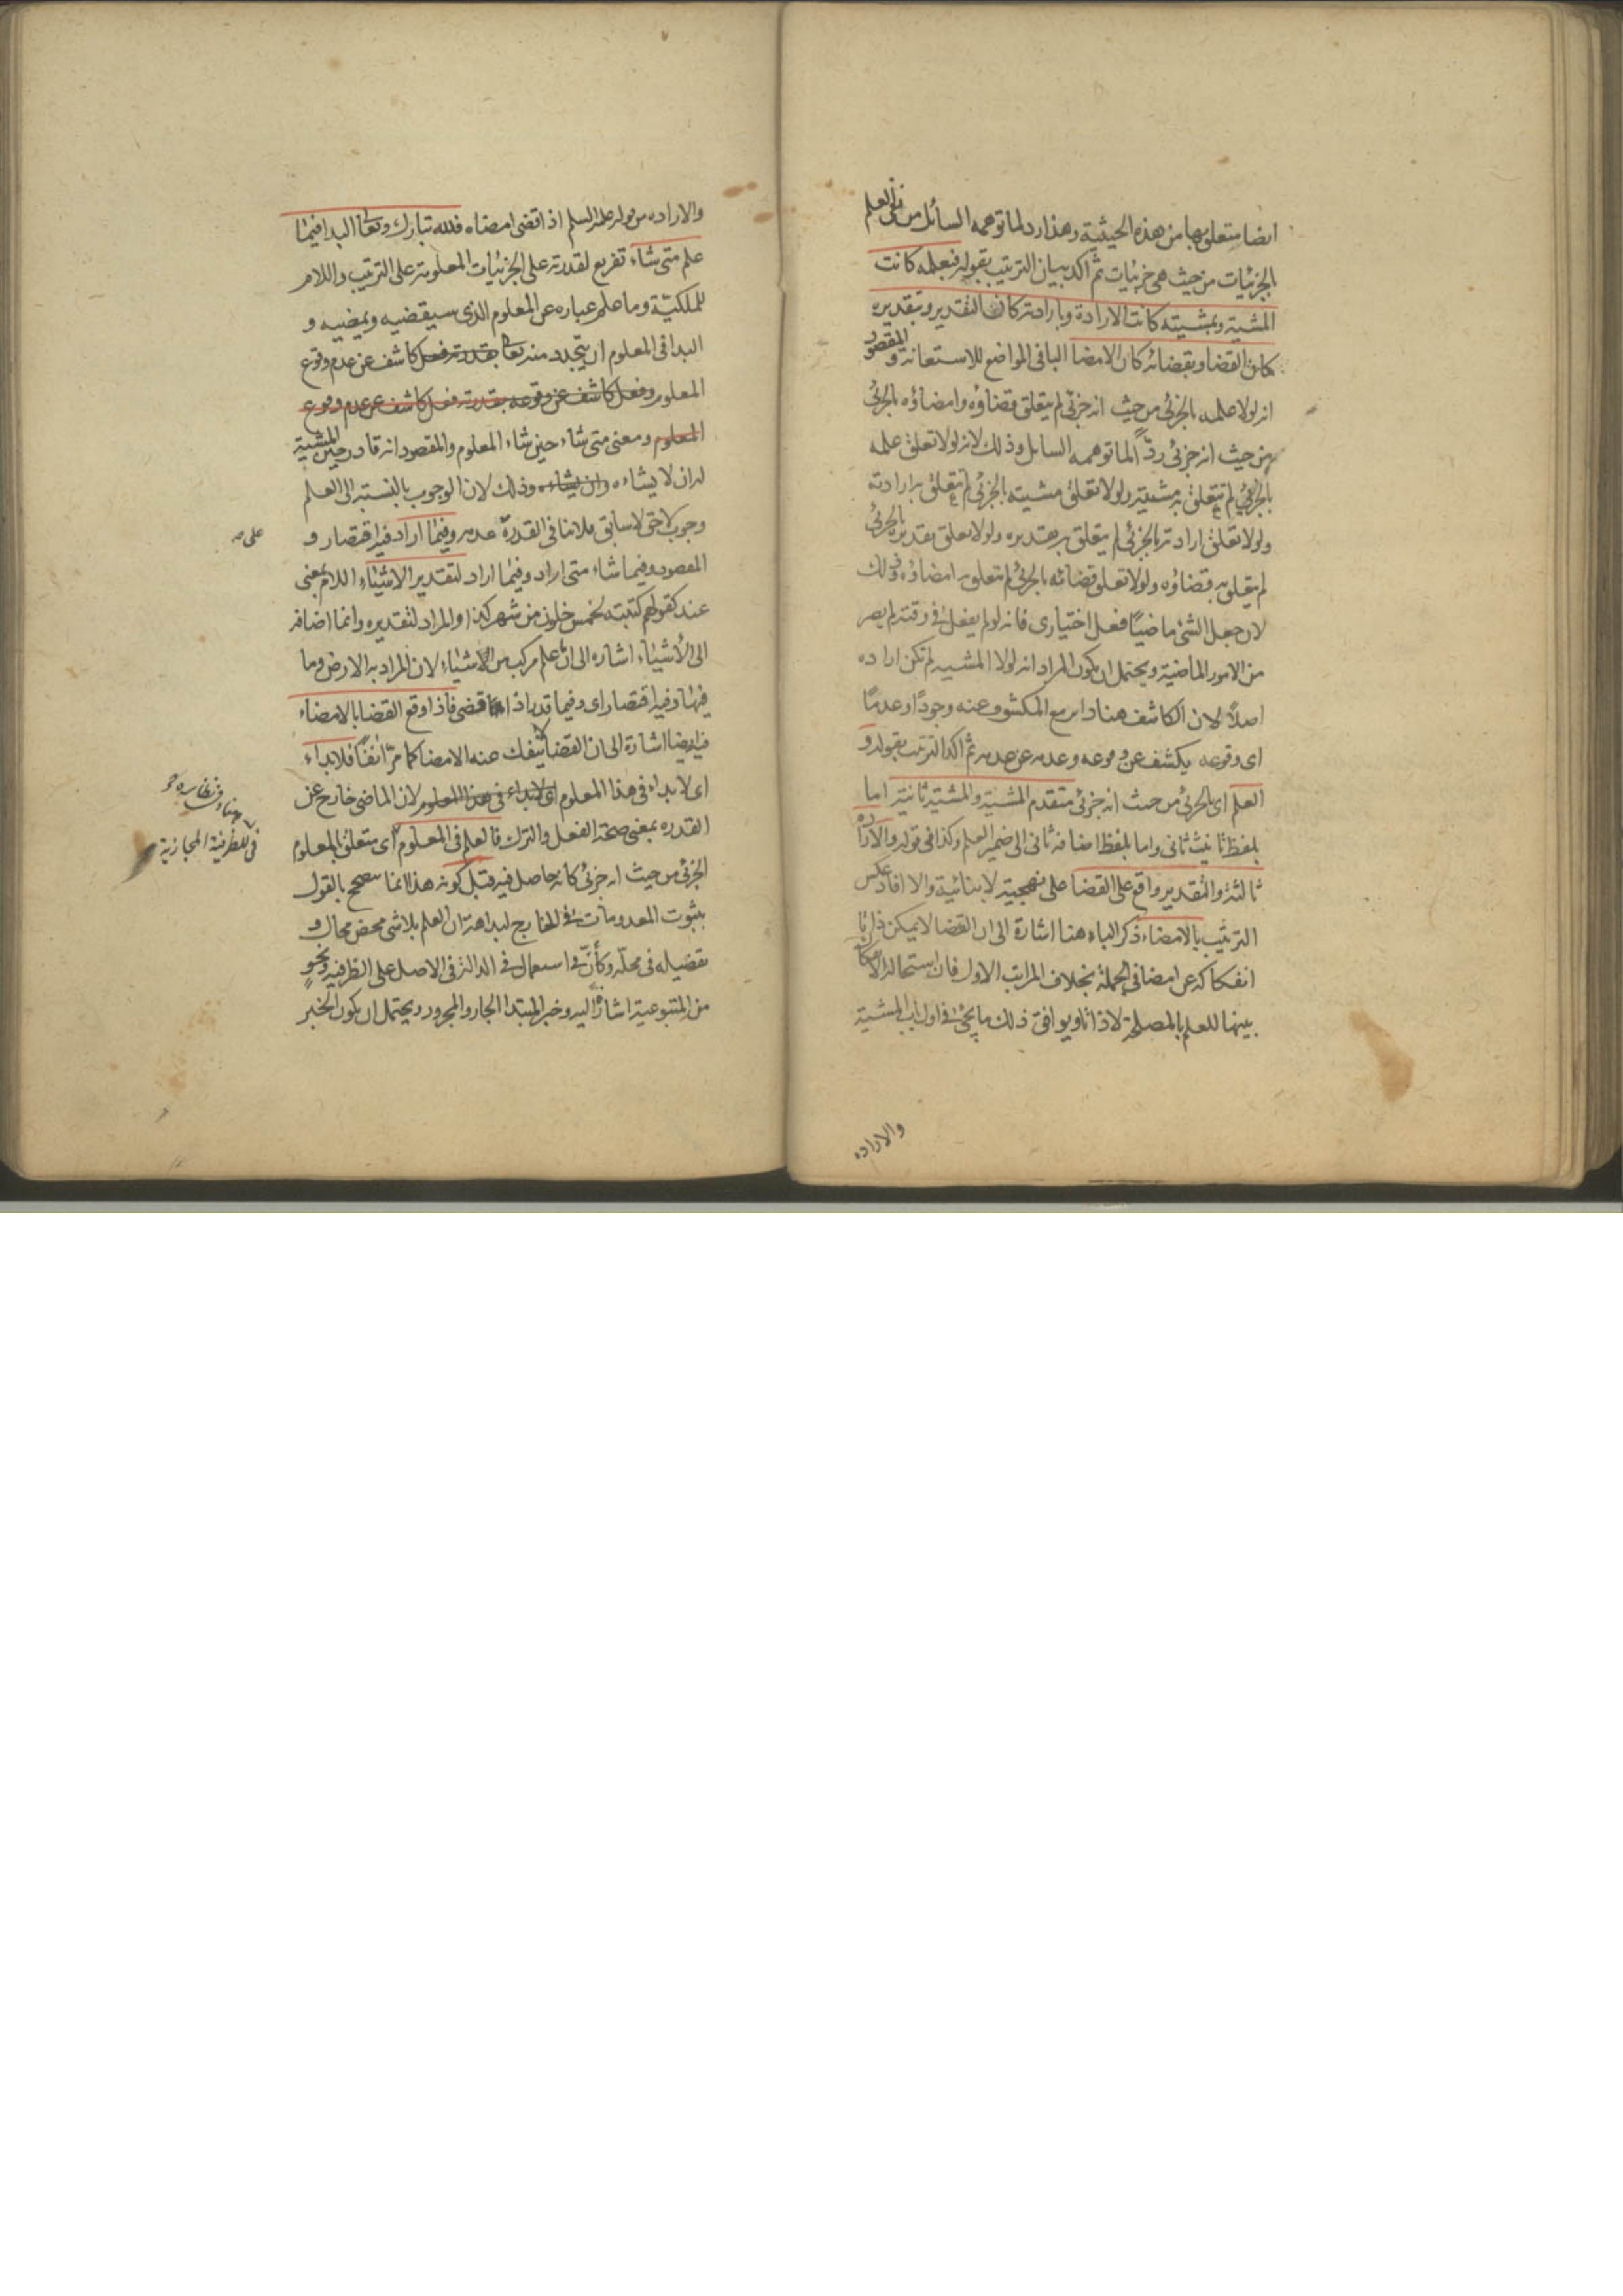 ايضا متعلق بها من هذه الحيثية وهذا رد لما توهمه السائل من تأتى العلم
بالجزئيات من حيث هى جزئيات ثم اكد بيان الترتيب بقوله فبعلمه كانت
المشية وبمشيته كانت الارادة وبارادته كان التقدير وبتقديره
كان القضا وبقضائه كان الامضا البا فى المواضع للاستعانة والمقصود
انه لولا علمه بالجزئى من حيث انه جزئى لم يتعلق قضاؤه وامضاؤه بالجزئى
من حيث انه جزئى ردّاً لما توهمه السايل وذلك لانه لولا تعلق علمه
بالجزئى لم يتعلق به مشيته ولولا تعلق مشيته بالجزئى لم يتعلق به ارادته
ولولا تعلق ارادته بالجزئى لم يتعلق به تقديره ولولا تعلق تقديره بالجزئى
لم يتعلق به قضاؤه ولولا تعلق قضائه بالجزئى لم يتعلق به امضاؤه وذلك
لان جعل الشئ ماضيًا فعل اختيارى فانه لو لم يفعل فى وقته لم يصر
من الامور الماضية ويحتمل ان يكون المراد انه لولا المشيه لم تكن اراده
اصلاً لان الكاشف هنا دا مع المكشوف عنه وجودًا وعدمًا
اى وقوعه يكشف عن وقوعه وعدمه عن عدمه ثم اكد الترتيب بقوله و
العلم اى بالجزئى من حيث انه جزئى متقدم المشية والمشية ثانية اما
بلفظ تانيث ثانى واما بلفظ اضافة ثانى الى ضمير العلم وكذا فى قوله والارادة
ثالثة والتقدير واقع على القضا على نهجية لابنائية والا افاد عكس
الترتيب بالامضاء ذكر الباء هنا اشارة الى ان القضا لا يمكن ذاتيا
انفكاكه عن امضا فى الجملة بخلاف المراتب الاول فان استحالة الانفكاك
بينها للعلم بالمصلحة لا ذاتا ويوافق ذلك ما يجئ فى اول باب المشية
والاراده
والاراده من قوله عليه السلم اذا قضى امضاه فلله تبارك وتعالى البدا فيما
علم متى شاء تفريع لقدرته على الجزئيات المعلومة على الترتيب واللام
للملكيّة وما علم عباره عن المعلوم الذى سيقضيه ويمضيه و
البدا فى المعلوم ان يتجدد منه تعالى بقدرته فعل كاشف عن عدم وقوع
المعلوم وفعل كاشف عن وقوعه بقدرته فعل كاشف عن عدم وقوع
المعلوم ومعنى متى شاء حين شاء المعلوم والمقصود انه قادر حين المشية
له ان لا يشاءه وان يشاءه وذلك لان الوجوب بالنسبة الى العلم
وجوب لاحق لا سابق فلا ينافى القدرة عدمه وفيما اراد فيه اقتصار و
على صه
المقصود وفيما شاء متى اراد وفيما اراد لتقدير الاشياء اللام بمعنى
عند كقولهم كتبته لخمس خلون من شهر كذا والمراد لتقديره وانما اضافه
الى الأشياء اشاره الى ان ما علم مركب من الاشياء لان المراد به الارض وما
فيها وفيه اقتصار اى وفيما قدر اذا قضى فاذا وقع القضا بالامضاء
فيه ايضا اشارة الى ان القضا لا ينفك عنه الامضا كما مرّ انفًا فلا بداء
اى لا بداء فى هذا المعلوم اى لا بداء فى هذا المعلوم لان الماضى خارج عن
القدره بمعنى صحة الفعل والترك فالعلم فى المعلوم اى متعلق بالمعلوم
فى للظرفية المجازية
الجزئى من حيث انه جزئى كانه حاصل فيه قبل كونه هذا انما يصحح بالقول
بثبوت المعدومات فى الخارج لبداهة ان العلم بلاشئ محض محال و
تفصيله فى محلّه وكأنّ فى استعمال فى الدالة فى الاصل على الظرفيه ونحوٍ
من المتبوعية اشارة اليه وخبر المبتدا الجار والمجرور ويحتمل ان يكون الخبر